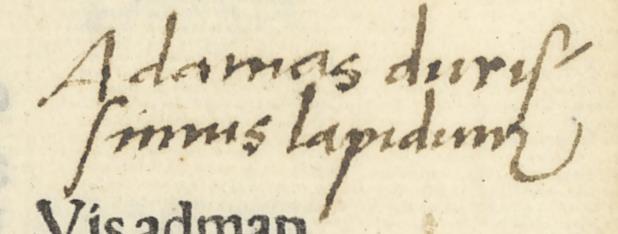 Adamas duris-
simus lapidum
Vis adman